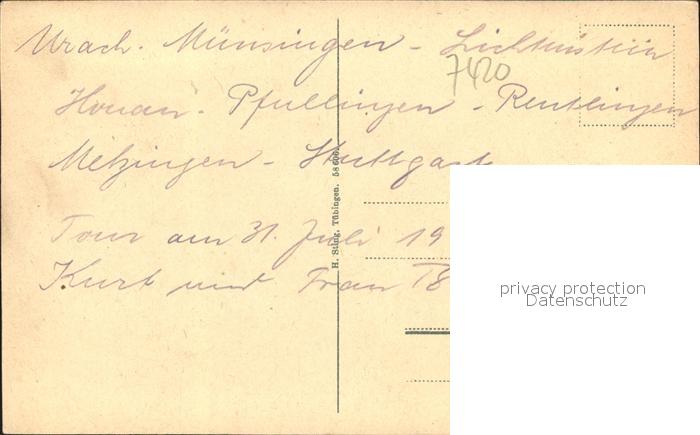 Urach. Münsingen - Lichtenstein
7420
Honau - Pfullingen - Reutlingen
Metzingen - Stuttgart
H. Sting, Tübingen. 58600
Tour am 31. Juli 19
Kurt und Frau
privacy protection
Datenschutz